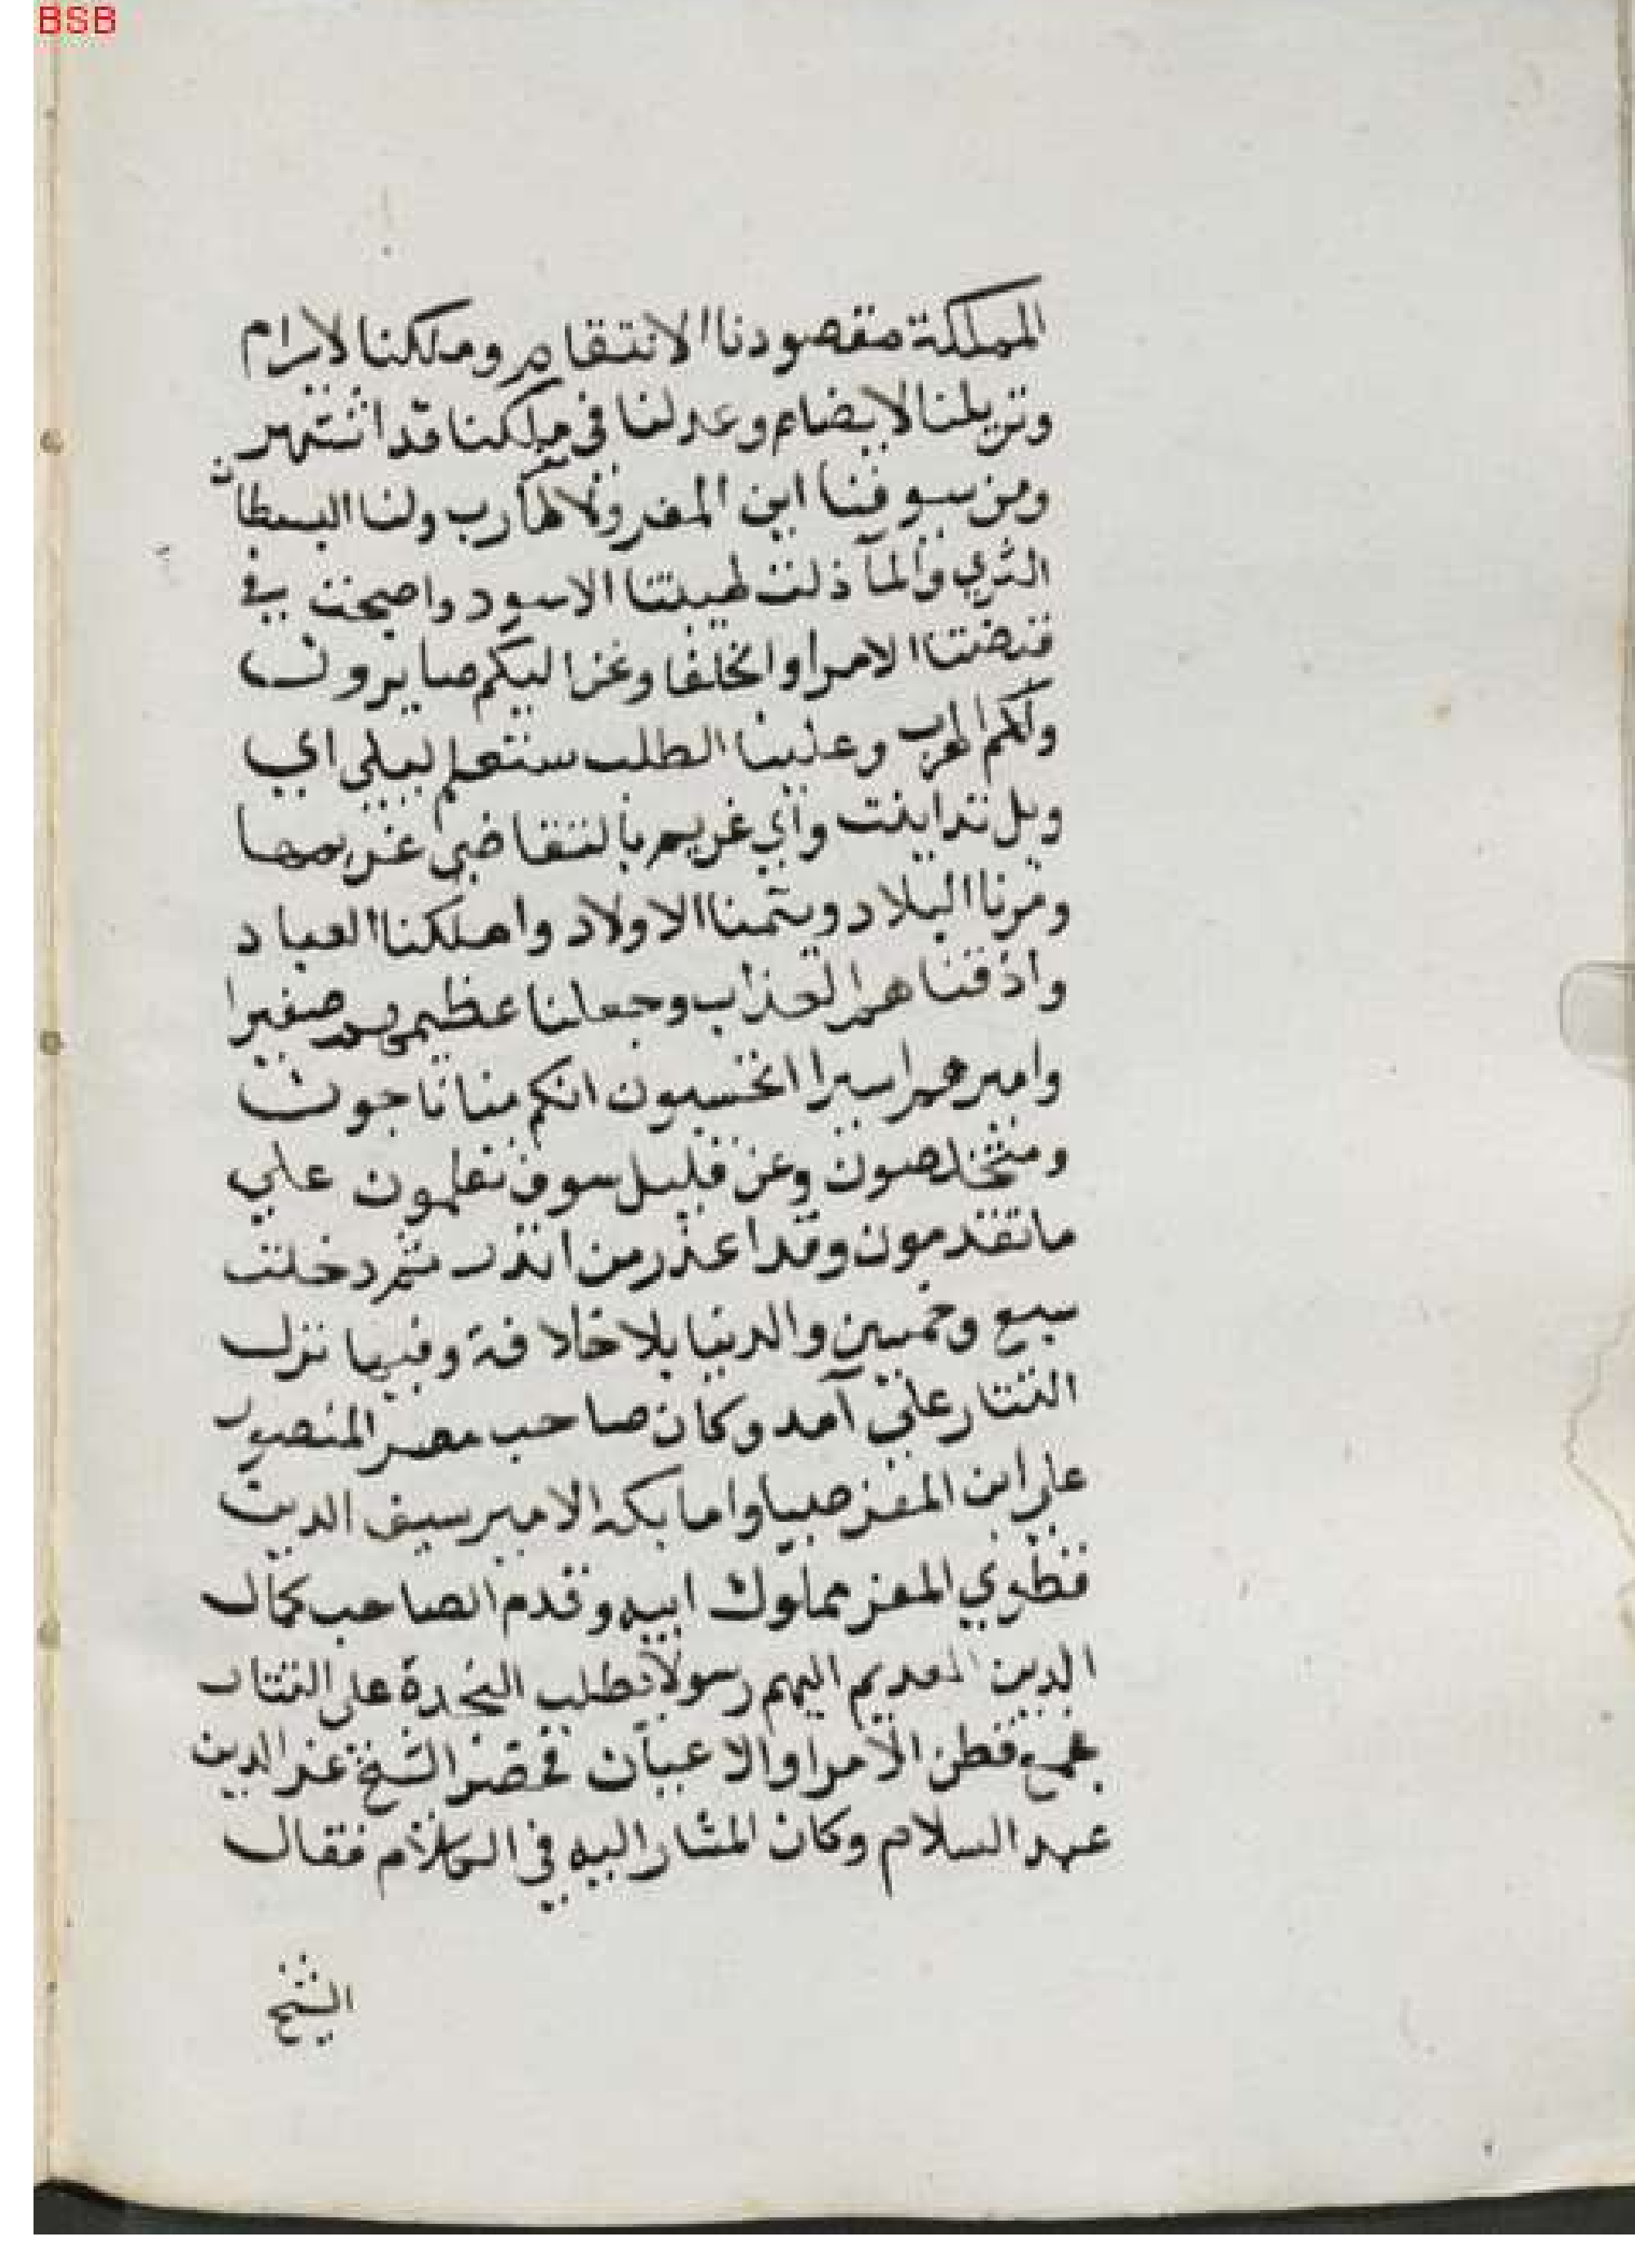 BSB
المملكة مقصودنا الانتقام وملكنا لايرام
ونزيلنا لايضام وعدلنا في ملكنا قد اشتهر
ومن سيوفنا اين المفر ولا لهارب ولنا البسيطان
الثري والما ذلت لهيبتنا الاسود واصبحت في
قبضتنا الامرا والخلفا وغزا اليكم صايرون
ولكم الهرب وعلينا الطلب ستعلم ليلي اي
وبل تداينت واي غريم بالتقاضي غريمها
ومرنا البلاد ويتمنا الاولاد واهلكنا العباد
واذقناهم العذاب وجعلنا عظيمهم صغيرا
واميرهم اسيرا اتحسبون انكم منا ناجون
ومتخلصون وعن قليل سوف تعلمون علي
ما تقدمون وقد اعذر من انذر ثم دخلت
سبع وخمسين والدنيا بلا خلافة وفيها نزل
التتار علي آمد وكان صاحب مصر المنصور
علي ابن المعز صبيا واما بكه الامير سيف الدين
قطزي المعز مملوك ابيه وقدم الصاحب كمال
الدين العديم اليهم رسولا يطلب النجدة على التتار
فجمع قطز الامرا والاعيان فحضر الشيخ عز الدين
عبد السلام وكان المشار اليه في الكلام فقال
الشيخ